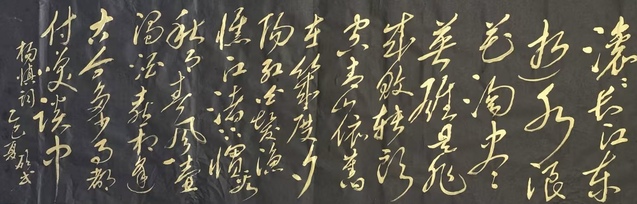 滚滚长江东
逝水浪
花淘尽
英雄是非
成败转头
空青山依旧
在几度夕
阳红白发渔
樵江渚上惯看
秋月春风一壶
浊酒喜相逢
古今多少事都
付笑谈中
杨慎词
乙巳夏